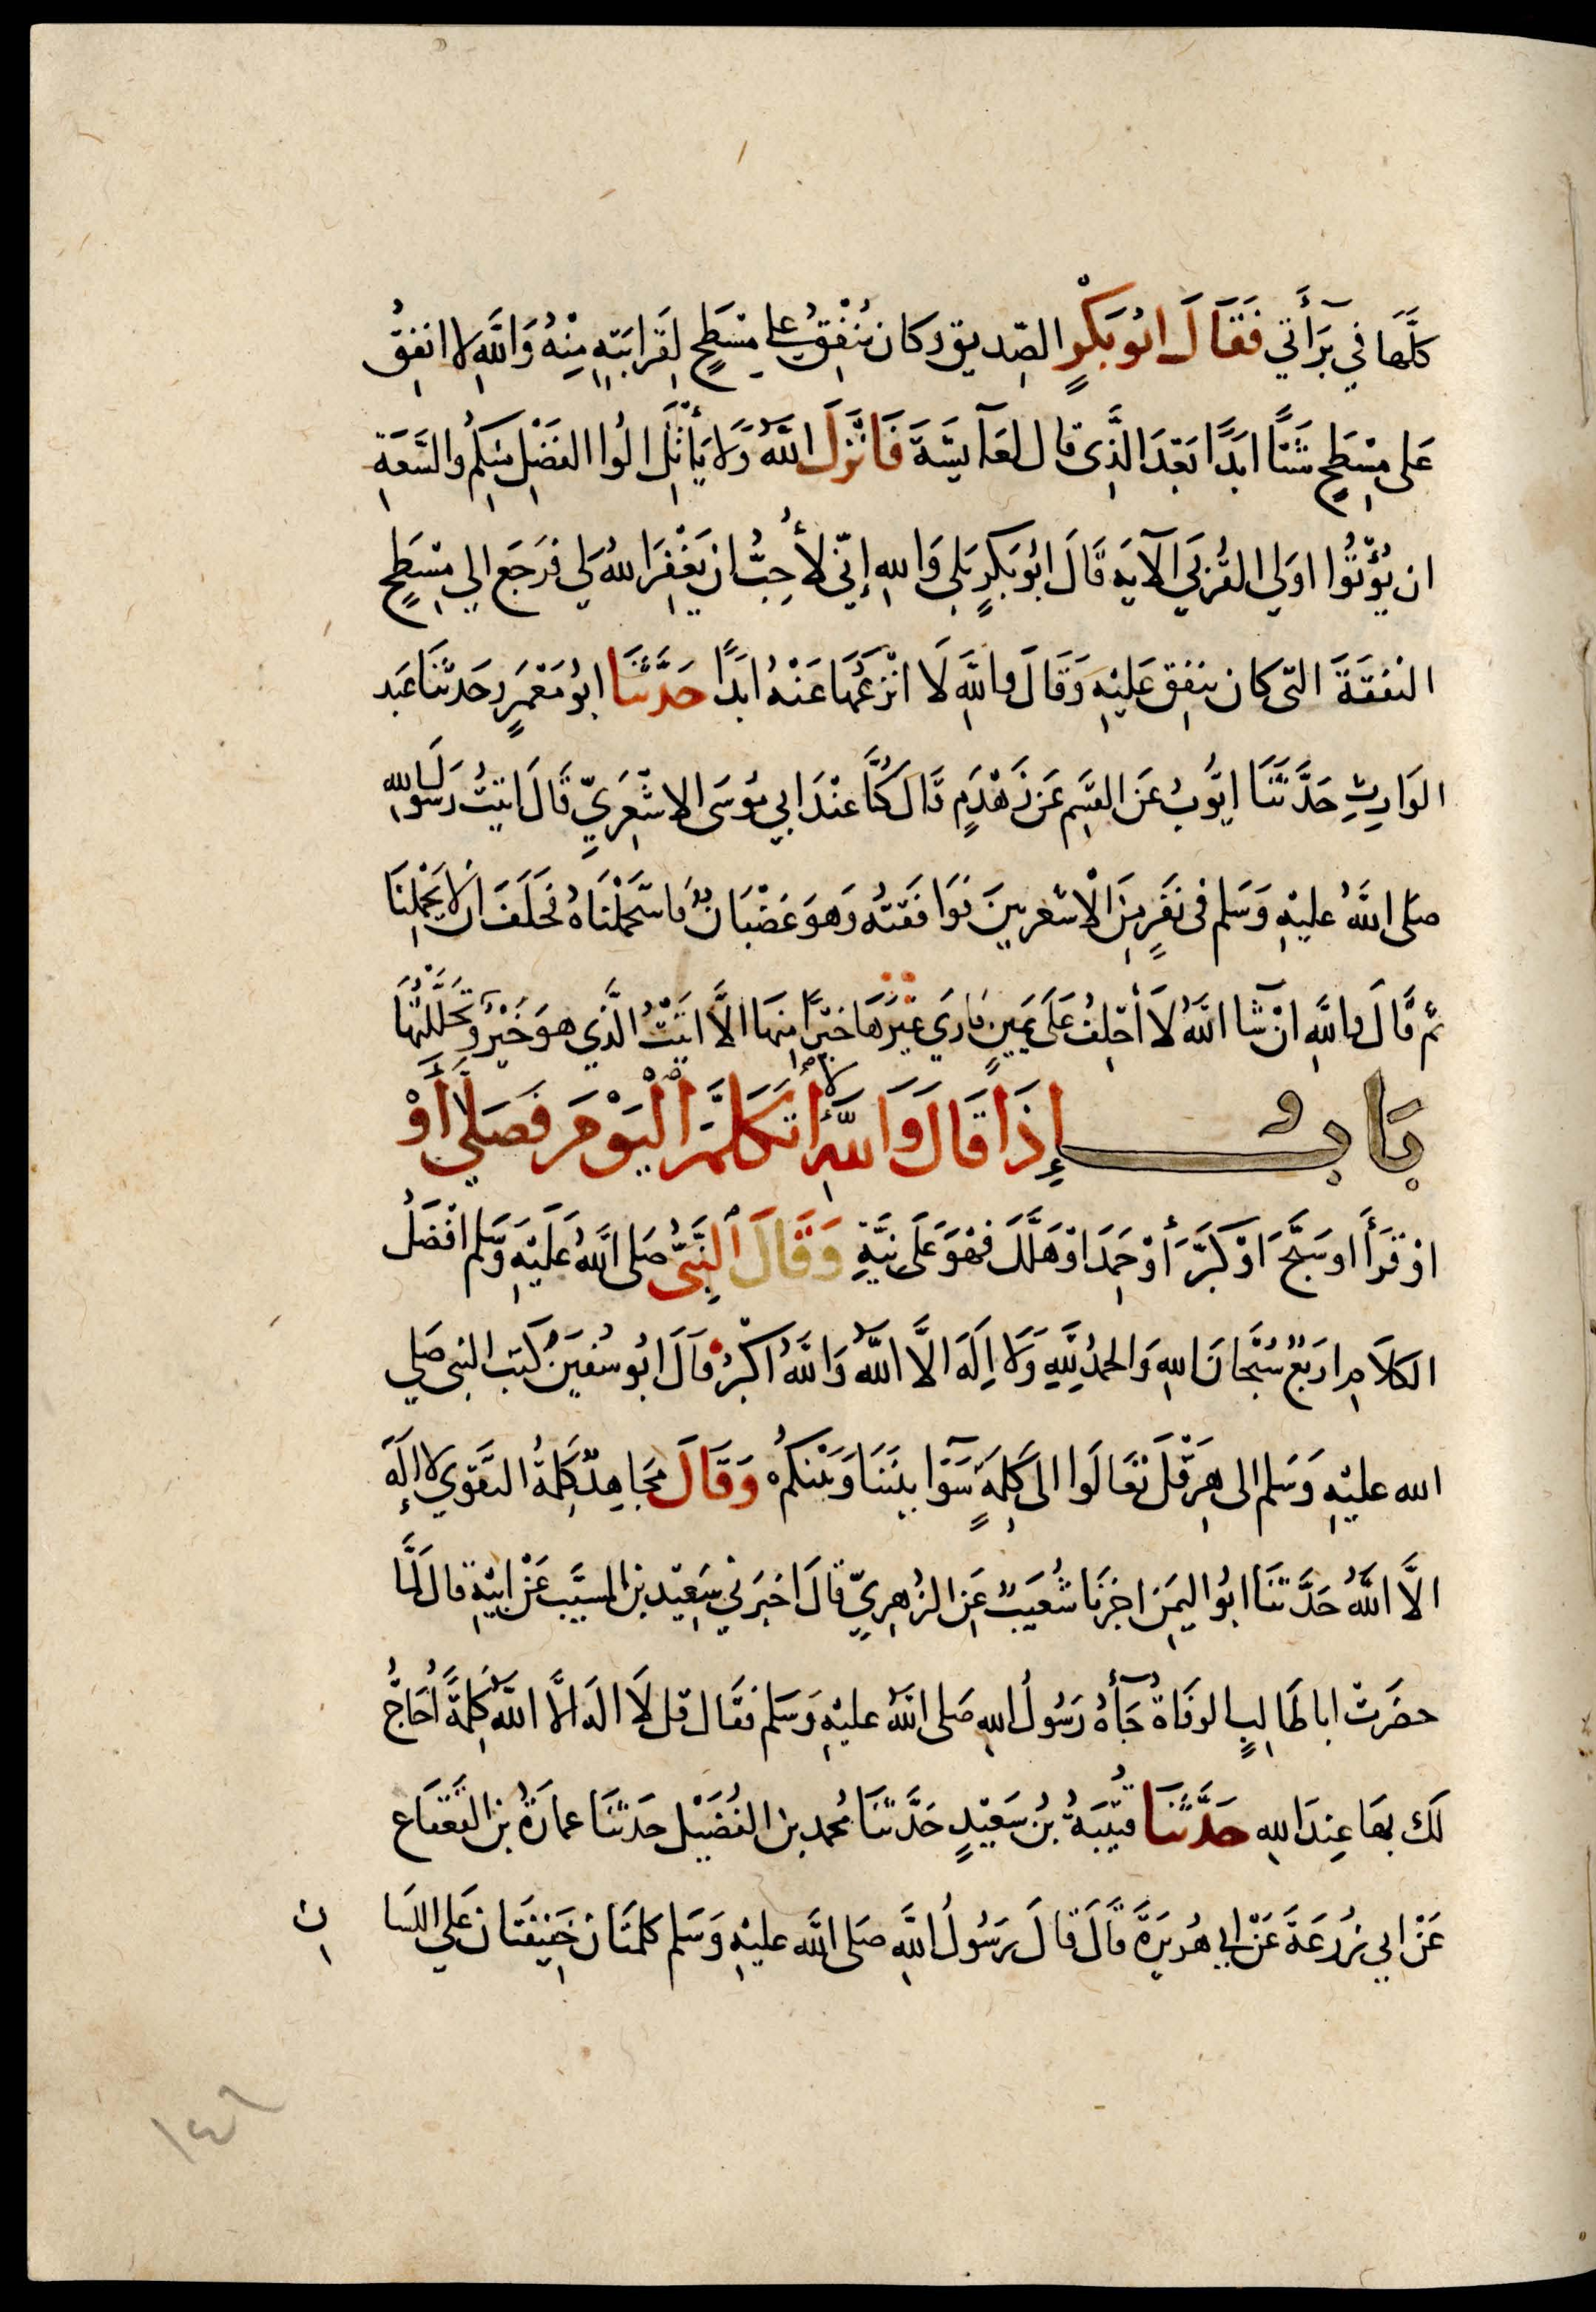 كلَّهَا في بَرَآءتي فَقَالَ ابُو بَكْرٍ الصِّديق وكان يُنْفِقُ على مِسْطَحٍ لِقَرابَتِهِ مِنْهُ وَاللَّهِ لا انفِقُ
عَلى مِسْطَحٍ شَيْئًا ابَدًا بَعْدَ الَّذِي قال لعَآيشَةَ فَانْزَلَ اللَّهُ وَلَا يَأْتَلِ الُوا الفَضْلِ مِنكم والسَّعَةِ
ان يُؤْتُوا اولي القُرْبَى الآية قَالَ ابُو بَكرٍ بَلى وَاللهِ إنّي لأُحِبُّ ان يَغْفِرَ اللهُ لي فرَجَع الي مِسْطَحٍ
النفَقَةَ التي كان ينفِق عَليْهِ وَقَالَ واللَّهِ لَا انْزعُهَا عَنْهُ ابَدًا حَدَّثَنَا ابُو مَعْمَرٍ حَدثنَا عَبد
الوَارِثِ حَدَّثَنَا ايُّوبُ عَن القسِم عَن زَهْدَمٍ قَال كُنَّا عنْدَ ابي مُوسَى الاشْعَرِيِّ قَالَ اتيتُ رَسُولَ اللهِ
صَلى اللَّهُ عليْهِ وَسَلم في نفَرٍ مِنَ الْاشعريينَ فوَافَقتُه وَهوَ غَضْبَانُ فَاسْتَحْمَلْنَاهُ فحَلَفَ ان لا يَحْمِلنَا
ثم قَالَ واللَّهِ انْ شَا اللَّهُ لَا أحْلِفُ عَلَى يَمِينٍ فَاري غيْرَهَا خيْرًا منهَا الَّا اتَيْتُ الَّذي هوَ خَيْرٌ وَتَحَلَّلْتُهَا
بَابُ إِذَا قَالَ وَاللَّهِ لَا أتَكَلَّمُ الْيَوْمَ فَصَلَّى أَوْ
اوْ قَرَأَ او سَبَّحَ اوْ كَبَّرَ أوْ حَمِدَ اوْ هَلَّلَ فهْوَ عَلَى نِيَّتِهِ وَقَالَ النَّبِيُّ صَلى اللَّهُ عَلَيْهِ وَسَّلم افْضَلُ
الكلَامِ ارَبَعٌ سُبْحَانَ اللهِ وَالحمدُ لِلَّهِ وَلَا اِلَهَ الَّا اللَّهُ وَاللَّهُ اكْبَرُ قَالَ ابُو سُفيَنَ كتبَ النبى صَلي
الله عليْهِ وَسَلم الى هِرَقْلَ تعَالَوا الى كَلِمَةٍ سَوَآ بيْنَنَا وَبَيْنكمُ وَقَالَ مجَاهِدٌ كَلِمَةُ التَّقوي لا إلَهَ
الَّا اللَّهُ حَدَّثَنَا ابُوا اليَمِن اخبرنَا شُعَيبٌ عَنِ الزُهرِيِّ قَالَ اخبَرَني سَعِيْد بن المسيَّب عَنْ ابيْهِ قالَ لمَّا
حضَرَتْ ابا طَالِبٍ الوفَاةُ جَآءَهُ رَسُولُ اللهِ صَلى اللَّهُ عليْهِ وَسَلم فقَال قل لَا اله الَّا اللَّهُ كلِمَةً أُحَاجُّ
لَك بهَا عِندَ اللهِ حَدَّثَنَا قُتَيْبَةُ بنُ سَعِيْدٍ حَدَّثنَا مُحمد بن الفُضَيْل حَدثنَا عمارَةُ بن القَعْقَاع
عَنْ ابي زُرعَةَ عَنْ ابي هُريْرَةَ قَالَ قالَ رَسُولُ اللَّهِ صَلى اللَّه عليْهِ وَسَلم كلمتَان خَفِيفَتان عَلي اللسَان
١٤٦